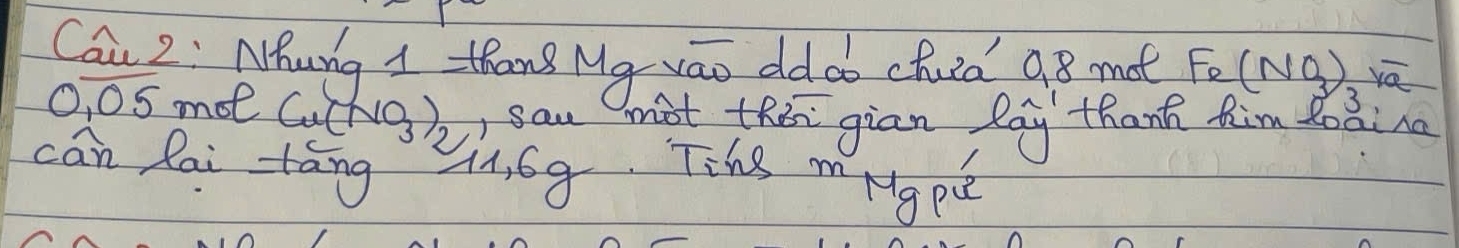 Câu 2: Nhúng 1 thanh Mg vào dd có chứa 0,8 mol Fe(NO3)3 và
0,05 mol Cu(NO3)2, sau một thời gian lấy thanh kim loại ra
cân lại tăng 11,6g. Tính m Mg pứ